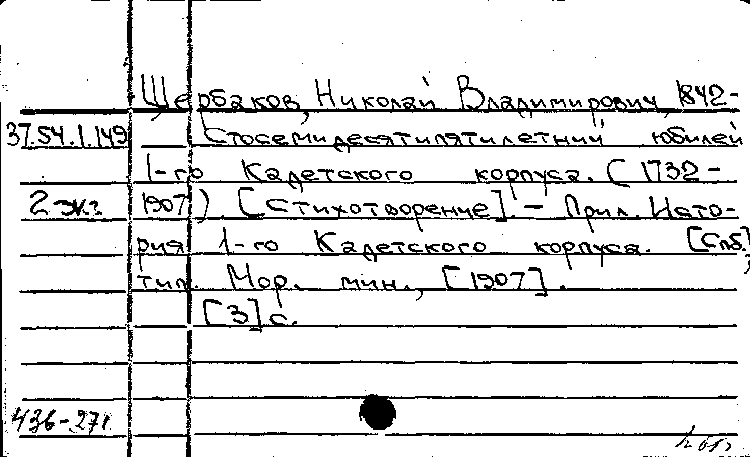 Щербаков, Николай Владимирович, 1842-
37.54.1.149 Стосемидесятипятилетний юбилей
1-го Кадетского корпуса. (1732-
2 экз. 1907). [Стихотворение]. - Прил. Исто-
рия 1-го Кадетского корпуса. [Спб],
тип. Мор. мин., [1907].
[3] с.
436-271